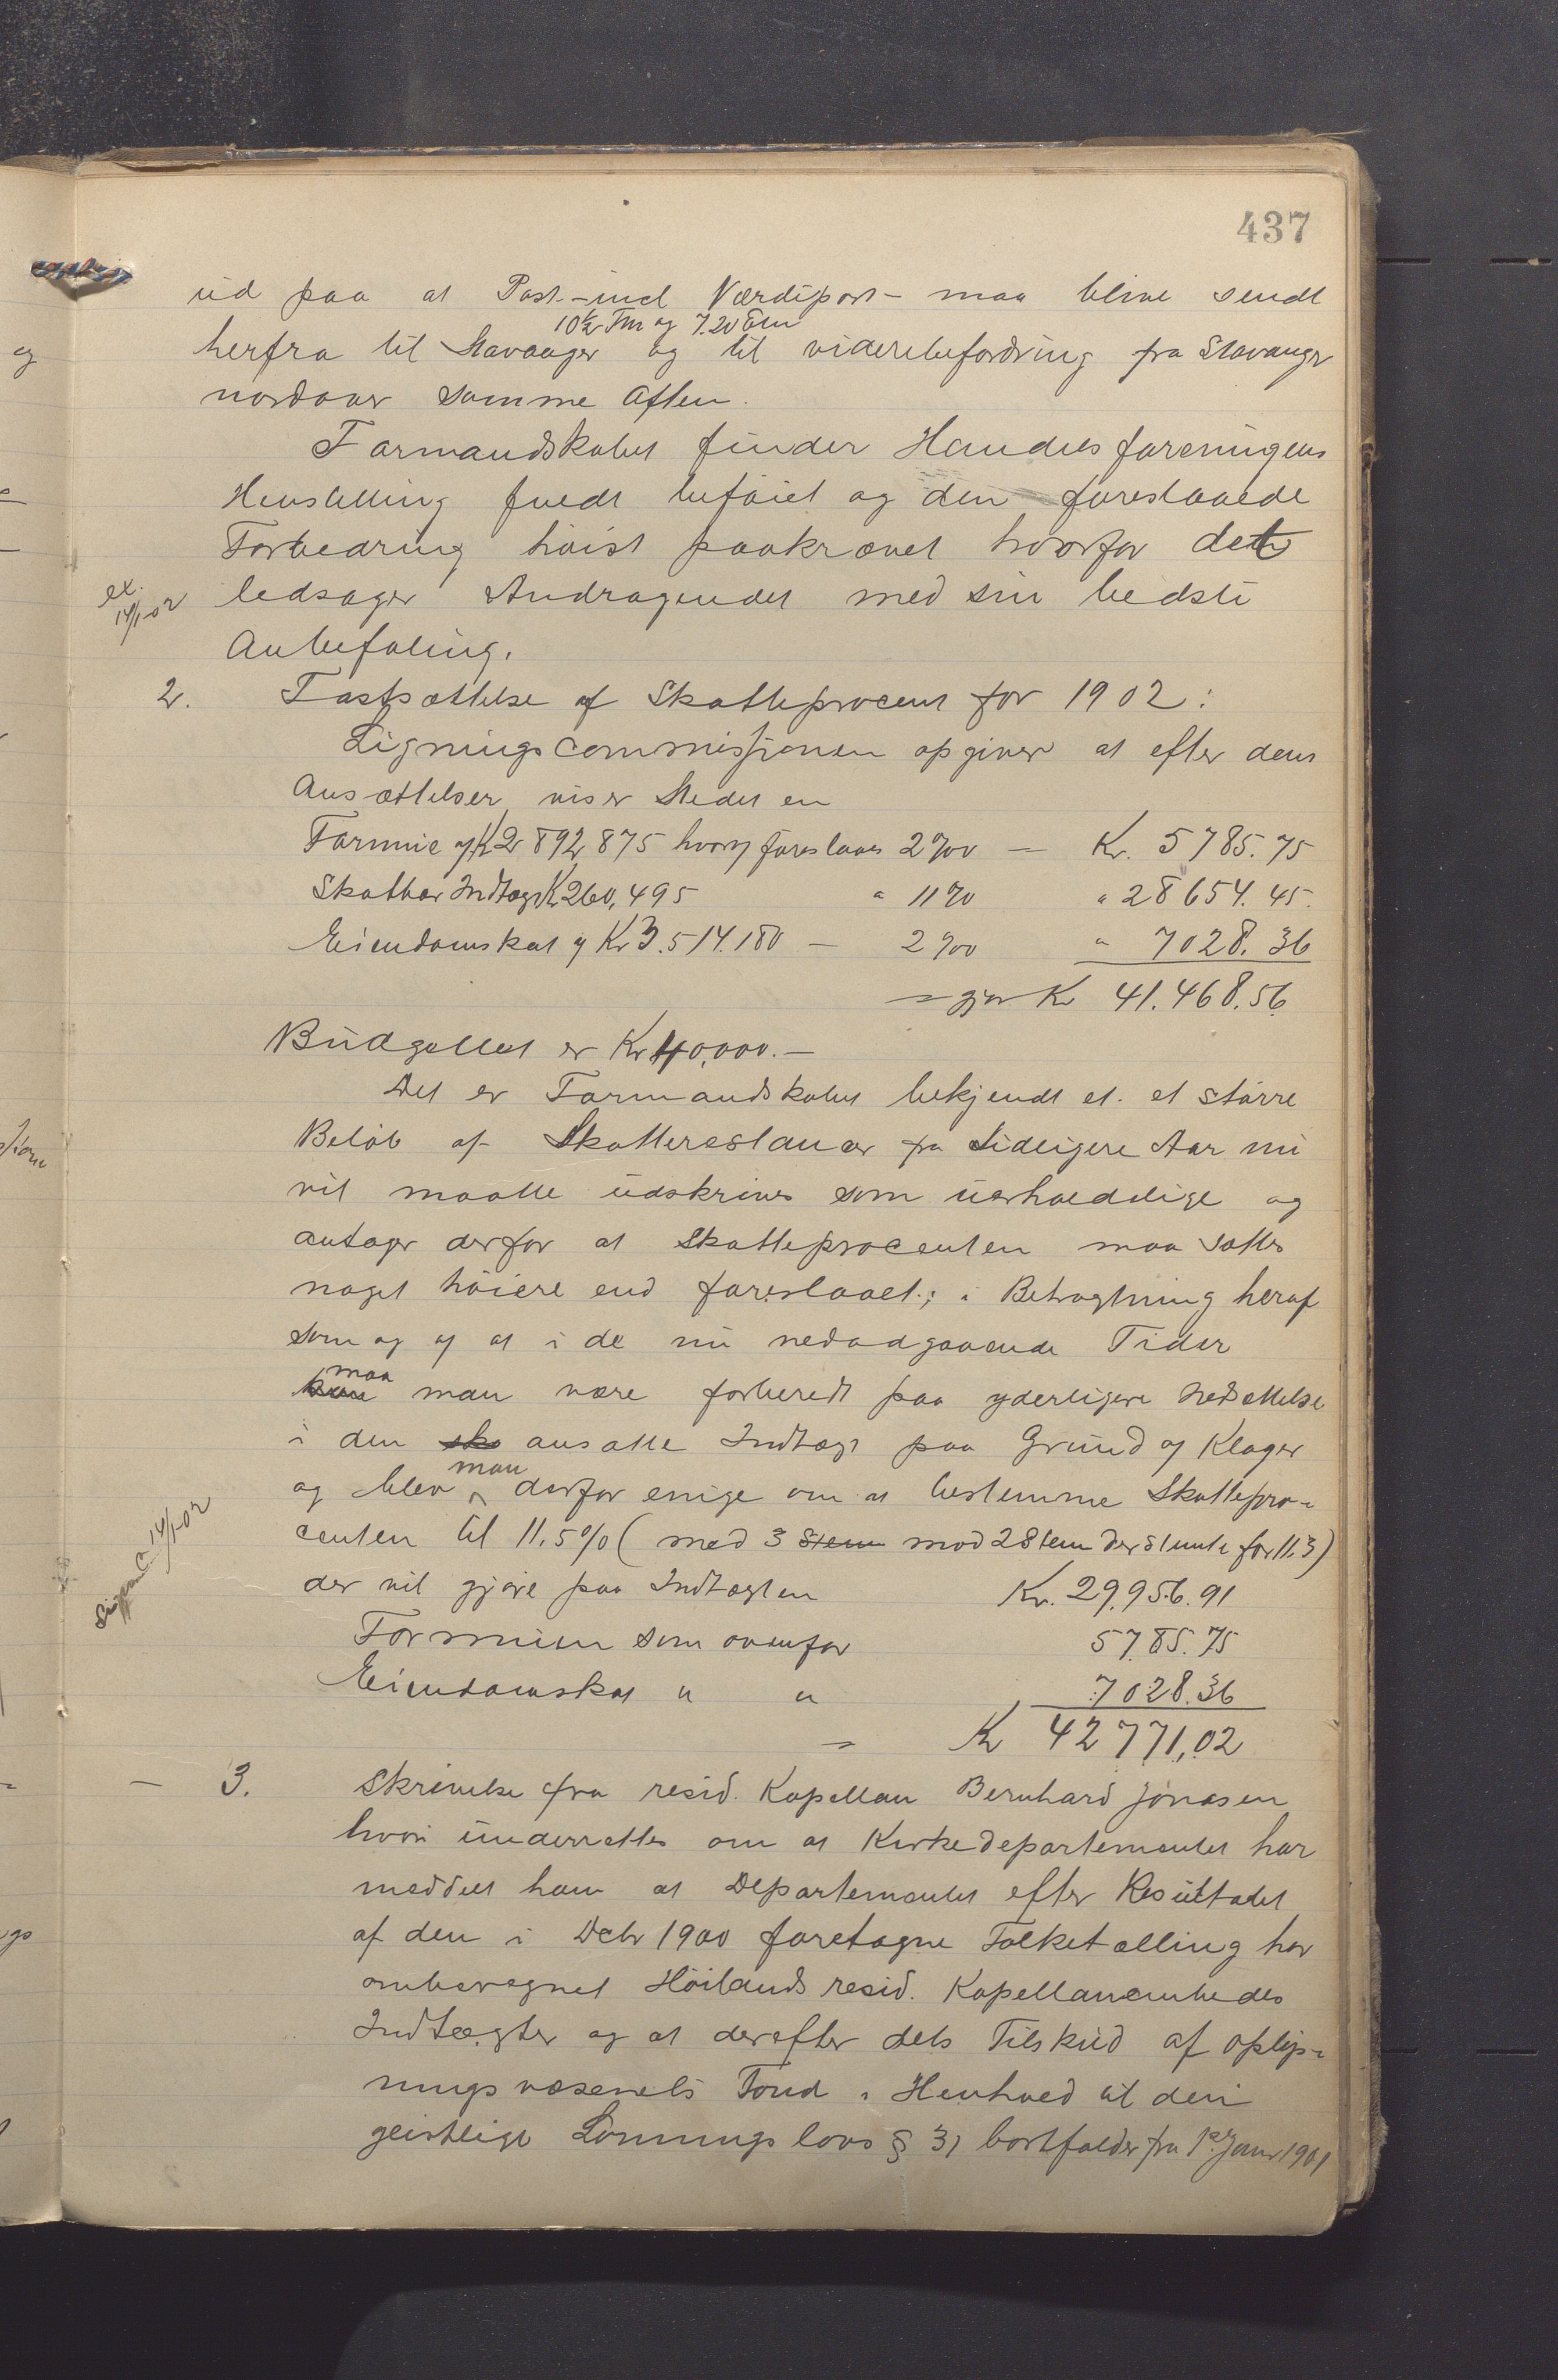 437
ud paa at Post - incl Værdipost - maa blive sendt
10½ Fm og 7.20 Em
herfra til Stavanger og til viderebefordring fra Stavanger
nordover samme Aften.
Formandskabet finder Handelsforeningens
Henstilling fuldt beføiet og den foreslaaede
Forbedring høist paakrævet hvorfor det
ex. 14/1-02
ledsager Andragendet med sin bedste
Anbefaling.
2. Fastsættelse af Skatteprocent for 1902:
Ligningscommissionen opgiver at efter dens
Ansættelser viser Stedet en
Formue af Kr 2 892,875 hvoraf foreslaaes 2 %00 — Kr. 5785.75
Skatbar Indtægt Kr 260,495 " 11 %0 " 28654.45.
Eiendomskat af Kr 3.514.180 — 2 %00 " 7028.36
= gjør Kr 41.468.56
Budgettet er Kr 40,000.—
Det er Formandskabet bekjendt at et større
Beløb af Skatterestancer fra tidligere Aar nu
vil maatte udskrives som uerholdelige og
antager derfor at Skatteprocenten maa sættes
noget høiere end foreslaaet; i Betragtning heraf
som og af at i de nu nedadgaaende Tider
maa
kan man være forberedt paa yderligere Nedsættelse
i den ska ansatte Indtægt paa Grund af Klager
man
og blev derfor enige om at bestemme Skattepro-
centen til 11.5% (med 3 Stem mod 2 Stem der stemte for 11.3)
14/1-02
der vil gjøre paa Indtægten Kr. 29.956.91
Formuen som ovenfor 5785.75
Eiendomskat " " 7028.36
= Kr 42771,02
— 3. Skrivelse fra resid. Kapellan Bernhard Jonasen
hvori underrettes om at Kirkedepartementet har
meddelt ham at Departementet efter Resultatet
af den i Decbr 1900 foretagne Folketælling har
omberegnet Høilands resid. Kapellanembedes
Indtægter og at derefter dets Tilskud af Oplys-
ningsvæsenets Fond i Henhold til den
geistlige Lønningslovs § 31 bortfalder fra 1ste Januar 1901